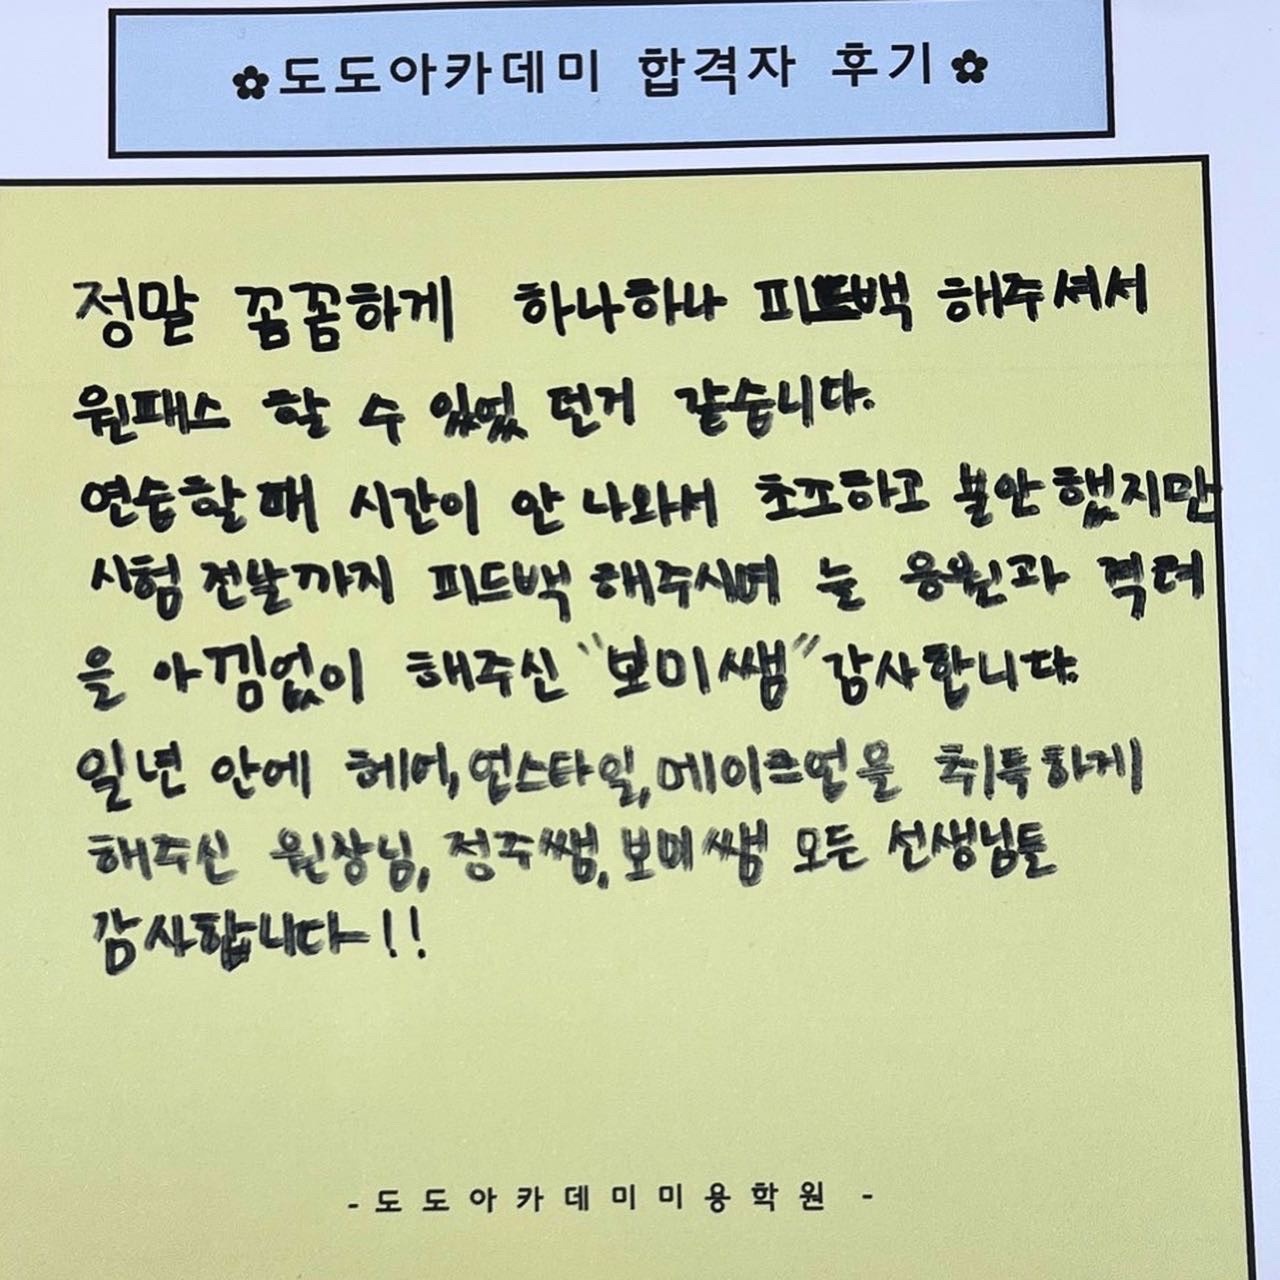 ✿도도아카데미 합격자 후기✿
정말 꼼꼼하게 하나하나 피드백 해주셔서
원패스 할 수 있었 던거 같습니다.
연습할때 시간이 안 나와서 초조하고 불안했지만
시험 전날까지 피드백 해주시며 늘 응원과 격려
을 아낌없이 해주신 "보미쌤" 감사합니다.
일년 안에 헤어, 업스타일, 메이크업을 취득하게
해주신 원장님, 정주쌤, 보미쌤 모든 선생님들
감사합니다!!
- 도도아카데미미용학원 -